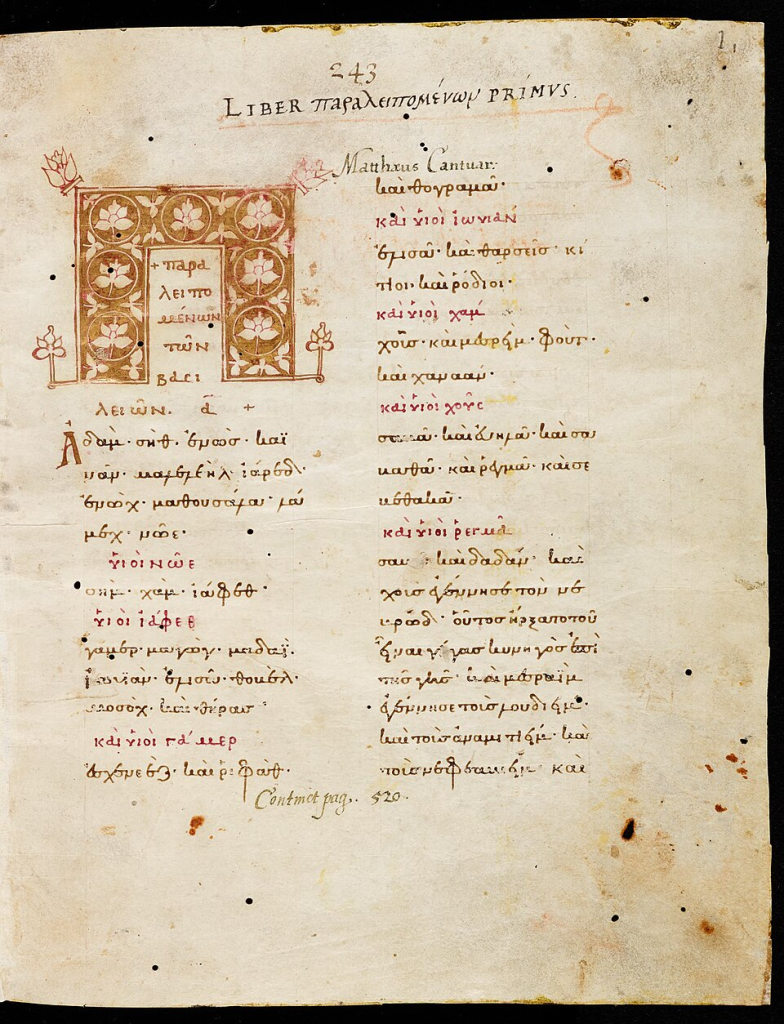 243
1.
LIBER παραλειπομένων PRIMVS.
Matthæus Cantuar:
+ παρα
λειπο
μένων
τῶν
βασι
λειῶν. α +
Ἀδὰμ· σὴθ· ἐνὼς· καϊ
νᾶν· μαλελεὴλ· ἰάρεδ·
ἐνὼχ· μαθουσάλα· λά
μεχ· νῶε·
ὑιοὶ νῶε
σὴμ· χὰμ· ἰάφεθ·
ὑιοὶ ἰάφεθ
γαμὲρ· μαγὼγ· μαδαϊ·
ἰωυϊὰν· ἐλισᾶ· θουβὲλ·
μοσὸχ· καὶ θέρας·
καὶ ὑιοὶ γάμερ
καὶ ῥιφὰθ·
καὶ θογραμὰ·
καὶ ὑιοὶ ἰωυιὰν
ἐλισὰ· καὶ θαρσεῖς· κί
τιοι· καὶ ῥόδιοι·
καὶ ὑιοὶ χαμ
χοῦς· καὶ μεσρὴμ· φοὺτ·
καὶ χαναάν·
καὶ ὑιοὶ χοὺς
καὶ σα
καθὰ· καὶ ῥεγμὰ· καὶ σε
κεθαχὰ·
καὶ ὑιοὶ ῥεγμὰ
σαβὰ καὶ δαδάν· καὶ
χοῦς ἐγέννησε τὸν νε
βρώδ· οὗτος ἤρξατο τοῦ
εἶναι γίγας κυνηγὸς ἐπὶ
τῆς γῆς· καὶ μεσραῒμ
ἐγέννησε τοὺς λουδιεὶμ·
καὶ τοὺς ἀναμιεὶμ· καὶ
τοὺς καὶ
Continet pag. 520.